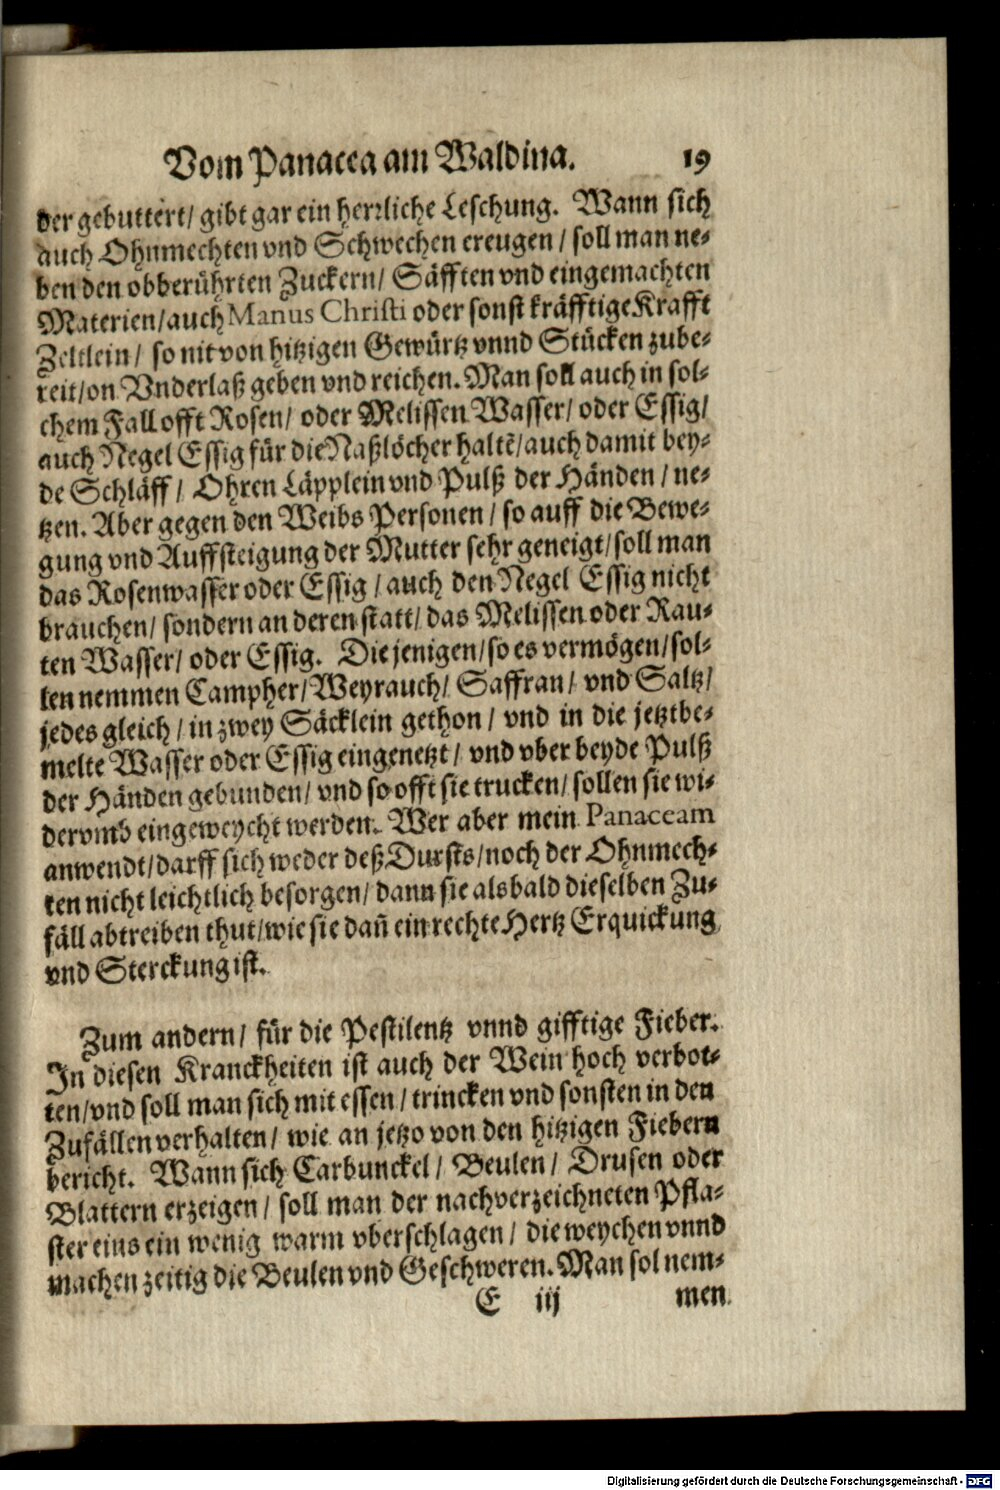 Vom Panacea am Waldina. 19
der gebuttert/ gibt gar ein herrliche Leschung. Wann sich
auch Ohnmechten vnd Schwechen ereugen / soll man ne-
ben den obberührten Zuckern/ Säfften vnd eingemachten
Materien/auch Manus Christi oder sonst kräfftige Krafft
Zeltlein/ so nit von hitzigen Gewürtz vnnd Stücken zube-
reit/on Vnderlaß geben vnd reichen. Man soll auch in sol-
chem Fall offt Rosen/ oder Melissen Wasser/ oder Essig/
auch Negel Essig für die Naßlöcher haltẽ/auch damit bey-
de Schläff / Ohren Läpplein vnd Pulß der Händen / ne-
tzen. Aber gegen den Weibs Personen / so auff die Bewe-
gung vnd Auffsteigung der Mutter sehr geneigt/soll man
das Rosenwasser oder Essig / auch den Negel Essig nicht
brauchen/ sondern an deren statt/ das Melissen oder Rau-
ten Wasser/ oder Essig. Die jenigen/so es vermögen/sol-
len nemmen Campher/Weyrauch/ Saffran/ vnd Saltz/
jedes gleich / in zwey Säcklein gethon / vnd in die jetztbe-
melte Wasser oder Essig eingenetzt / vnd vber beyde Pulß
der Händen gebunden/ vnd so offt sie trucken/ sollen sie wi-
dervmb eingeweycht werden. Wer aber mein Panaceam
anwendt/darff sich weder deß Dursts/noch der Ohnmech-
ten nicht leichtlich besorgen/ dann sie alsbald dieselben Zu-
fäll abtreiben thut/wie sie dañ ein rechte Hertz Erquickung
vnd Sterckung ist.
Zum andern/ für die Pestilentz vnnd gifftige Fieber.
In diesen Kranckheiten ist auch der Wein hoch verbot-
ten/vnd soll man sich mit essen / trincken vnd sonsten in den
Zufällen verhalten/ wie an jetzo von den hitzigen Fiebern
bericht. Wann sich Carbunckel/ Beulen/ Drusen oder
Blattern erzeigen/ soll man der nachverzeichneten Pfla-
ster eins ein wenig warm vberschlagen / die weychen vnnd
machen zeitig die Beulen vnd Geschweren. Man sol nem-
E iij men
Digitalisierung gefördert durch die Deutsche Forschungsgemeinschaft - DFG